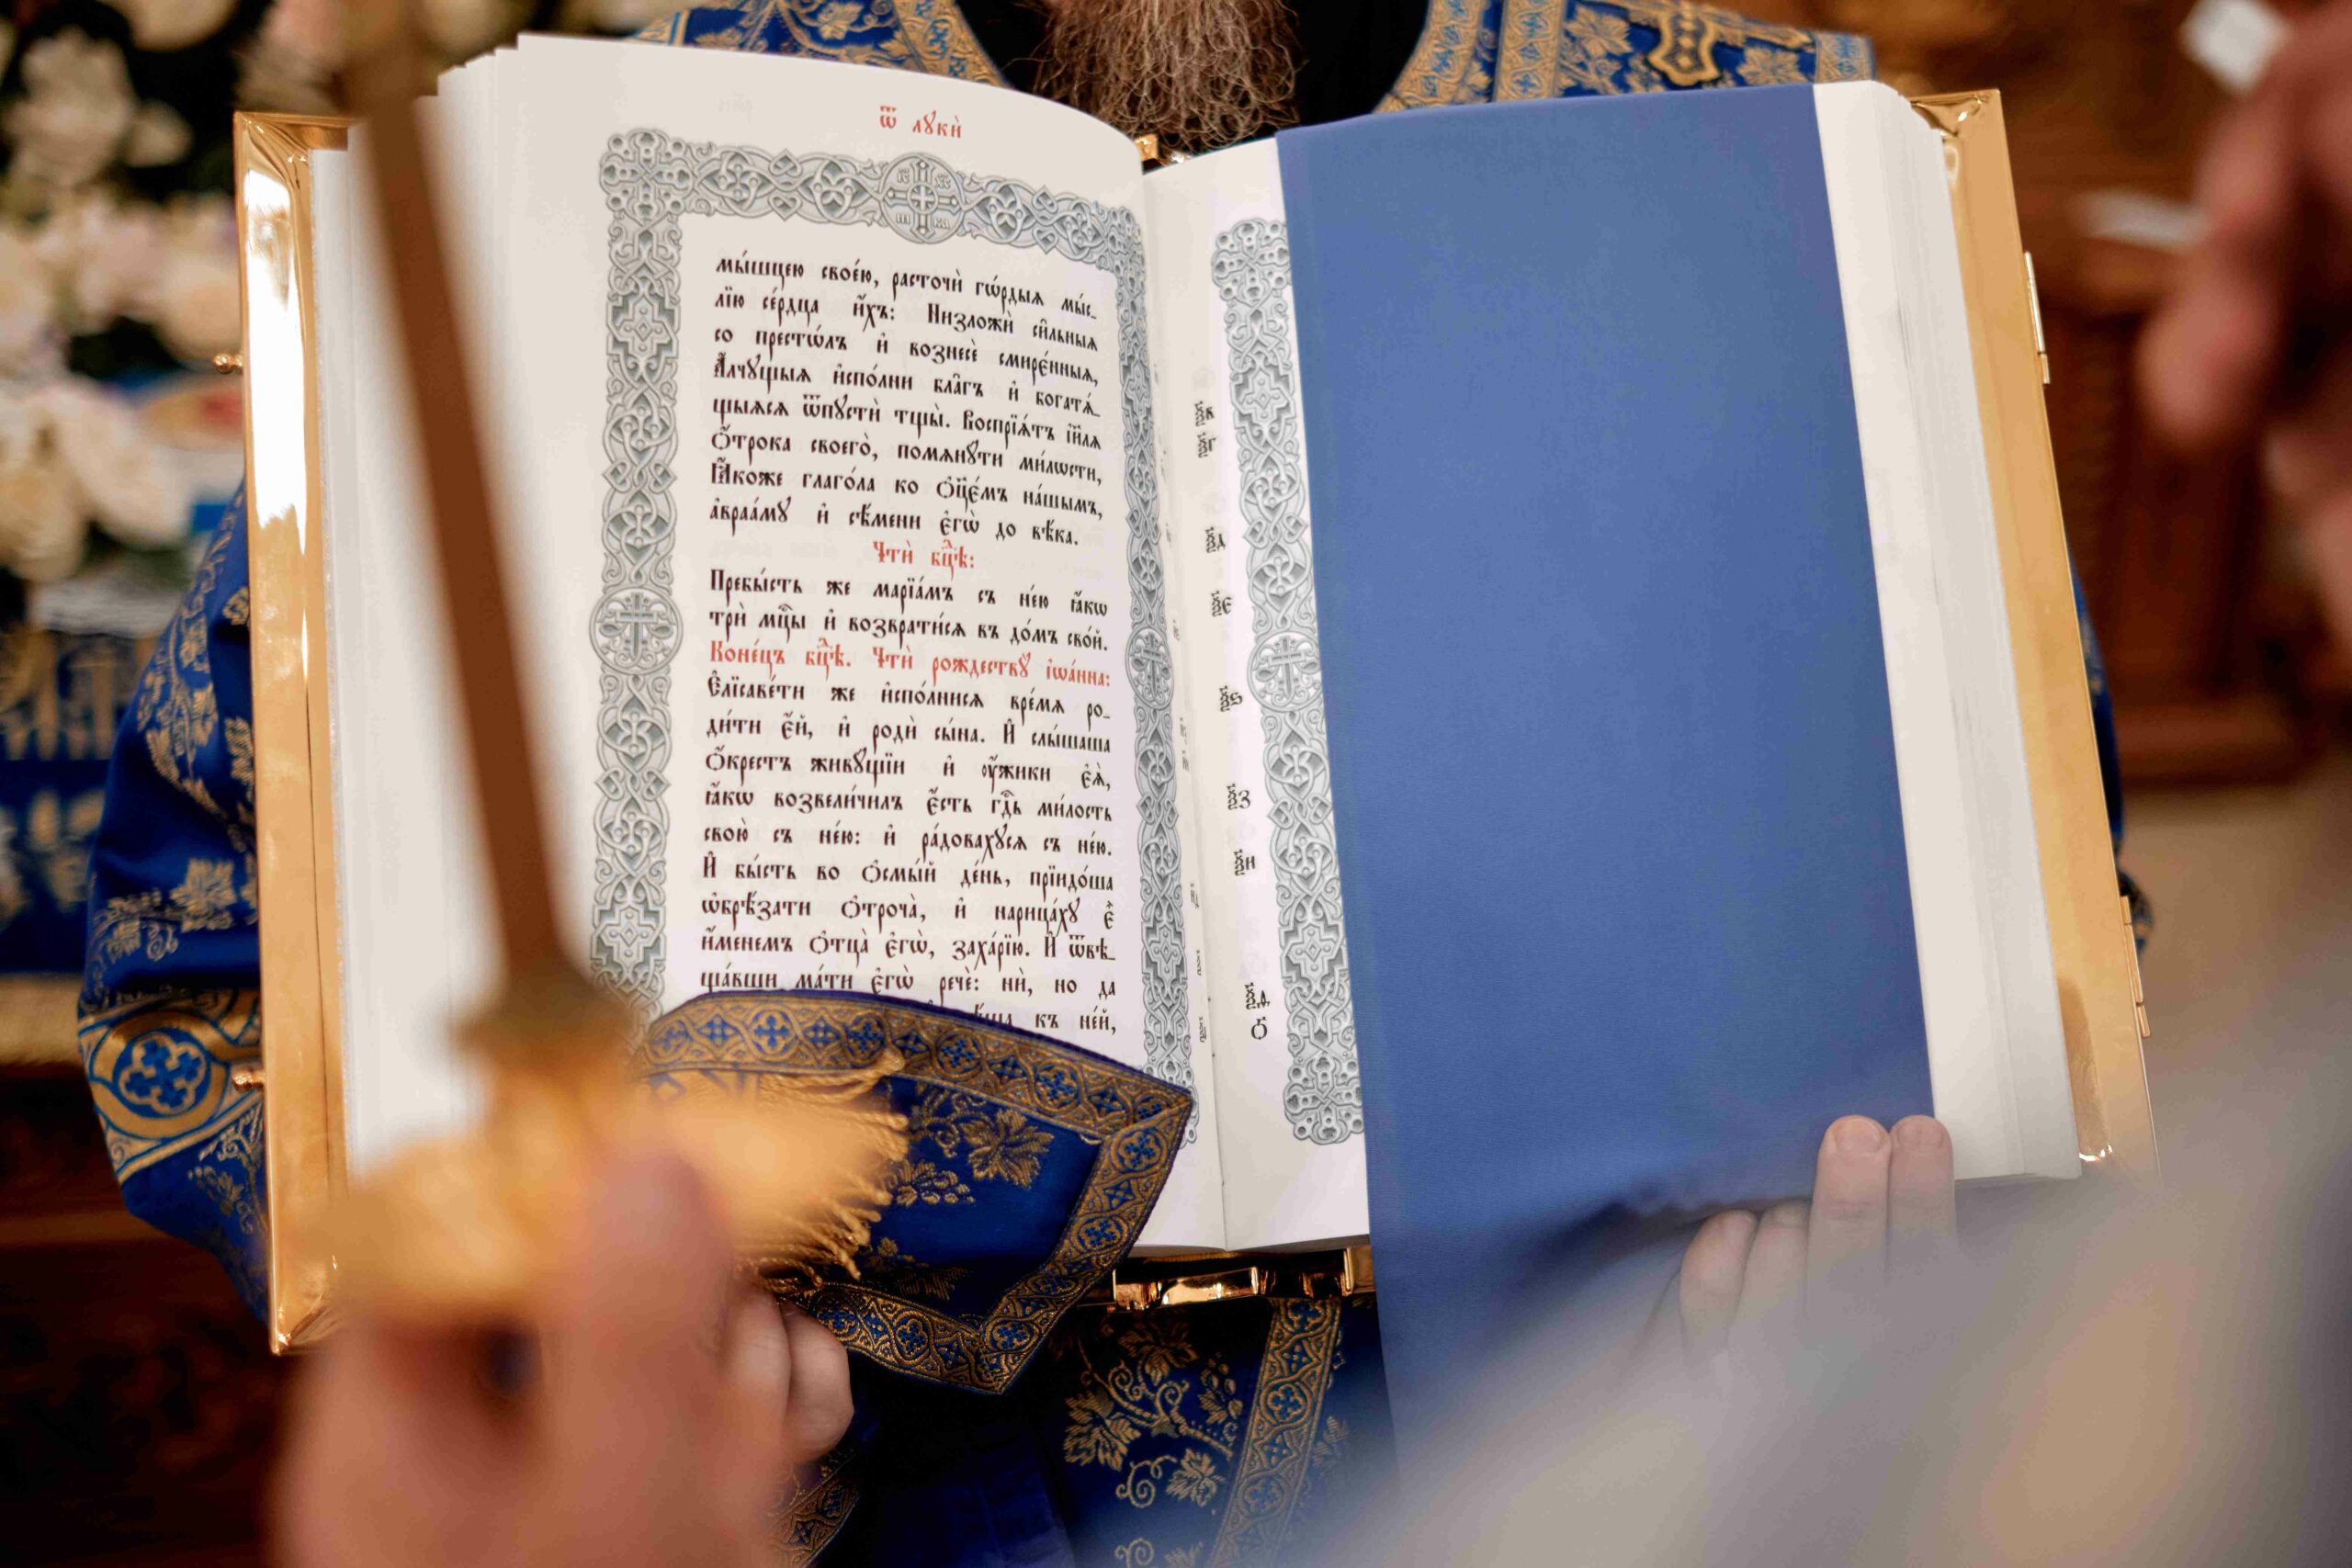 ѿ лꙋкѝ
мы́шцею своє́ю, расточѝ гѡ́рдыѧ мы́с_
лїю се́рдца и҆́хъ: Низложѝ си̑льныѧ
со престѡ́лъ и҆ вознесѐ смирє́нныѧ,
А҆́лчꙋщыѧ и҆спо́лни бла̑гъ и҆ богатѧ́_
щыѧсѧ ѿпꙋстѝ тщы̀. Воспрїѧ́тъ і҆и҃лѧ
Ѻ҆́трока своего̀, помѧнꙋ́ти ми́лѡсти,
Ꙗ҆́коже глаго́ла ко ѻ҆ц҃є́мъ на́шымъ,
а҆враа́мꙋ и҆ сѣ́мени є҆гѡ̀ до вѣ́ка.
Чтѝ бц҃ѣ:
Пребы́сть же марїа́мъ съ не́ю ꙗ҆́кѡ
трѝ мц҃ы и҆ возврати́сѧ въ до́мъ сво́й.
Коне́цъ бц҃ѣ. Чтѝ рождествꙋ̀ і҆ѡа́нна:
Є҆лїсаве́ти же и҆спо́лнисѧ вре́мѧ ро_
ди́ти є҆́й, и҆ родѝ сы́на. И҆ слы́шаша
ѻ҆́крестъ живꙋ́щїи и҆ ᲂу҆́жики є҆ѧ̀,
ꙗ҆́кѡ возвели́чилъ є҆́сть гдⷭ҇ь ми́лость
свою̀ съ не́ю: и҆ ра́довахꙋсѧ съ не́ю.
И҆ бы́сть во ѻ҆смы́й де́нь, прїидо́ша
ѡ҆брѣ́зати ѻ҆троча̀, и҆ нарица́хꙋ є҆̀
и҆́менемъ ѻ҆тца̀ є҆гѡ̀, заха́рїю. И҆ ѿвѣ_
ща́вши ма́ти є҆гѡ̀ речѐ: нѝ, но да
къ не́й,